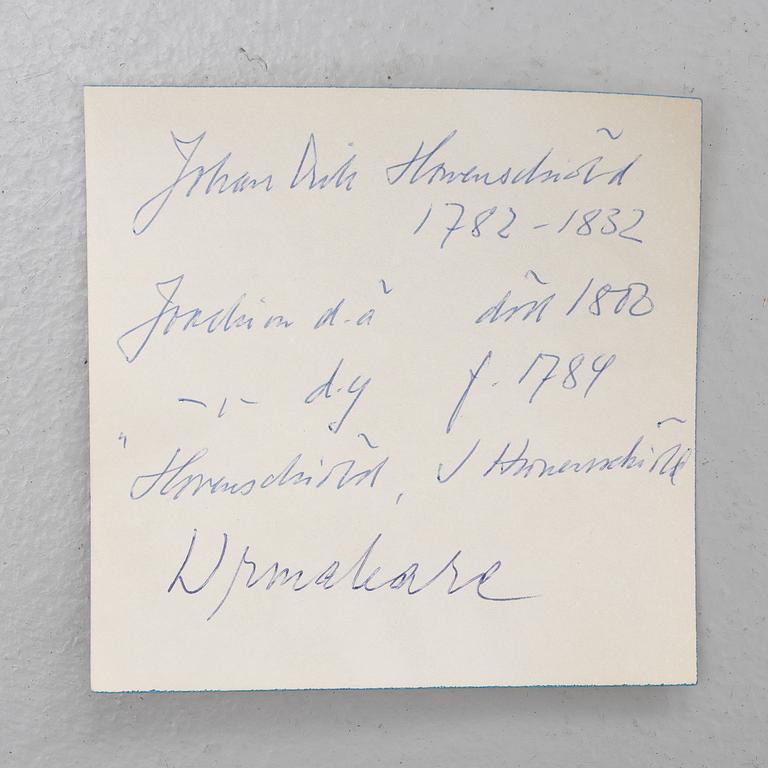 Johan Erik Hovenschiöld
1782 - 1832
Joachim d.ä död 1800
-,- d.y f. 1784
"Hovenschiöld, J Hovenschiöld
Urmakare